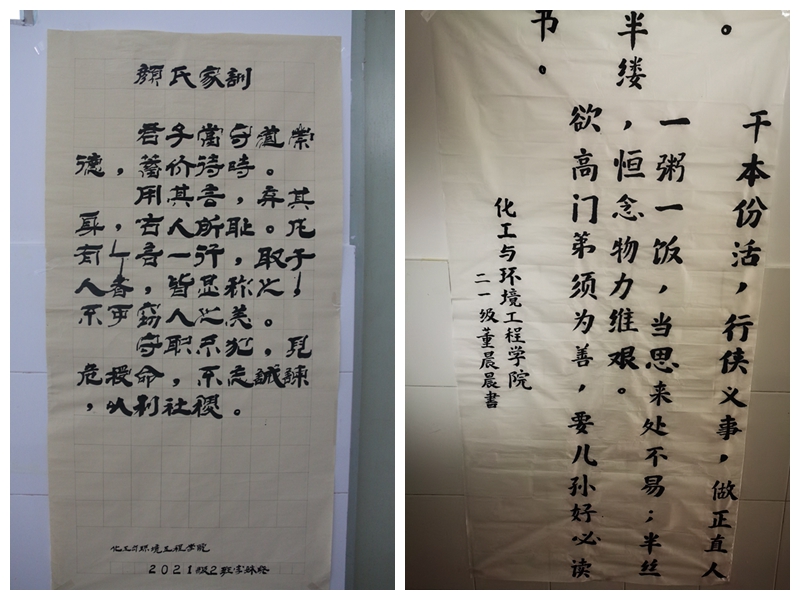 颜氏家訓
君子當守道崇
德，蓄价待時。
用其言，弃其
身，古人所耻。凡
有一言一行，取于
人者，皆显称之，
不可窃人之美。
守职不犯，見
危授命，不忘誠諫
，以利社稷。
化工与环境工程学院
2021级2班李
。
干本份活，行侠义事，做正直人
一粥一饭，当思来处不易；半丝
半缕，恒念物力维艰。
欲高门第须为善，要儿孙好必读
书。
化工与环境工程学院
二一级董晨晨書